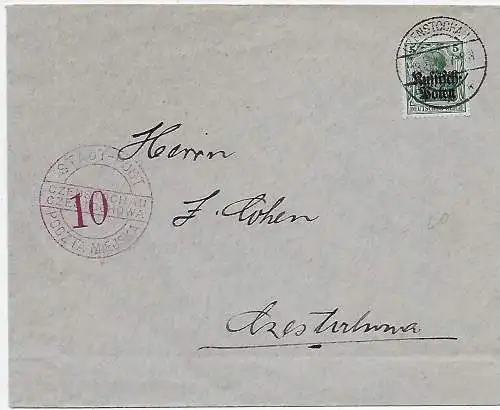 CZENSTOCHAU
5 5
Russisch-
Polen
Herrn
STADT-POST
CZENSTOCHAU
10
CZĘSTOCHOWA
POCZTA MIEJSKA
Z. Cohen
Czestochowa